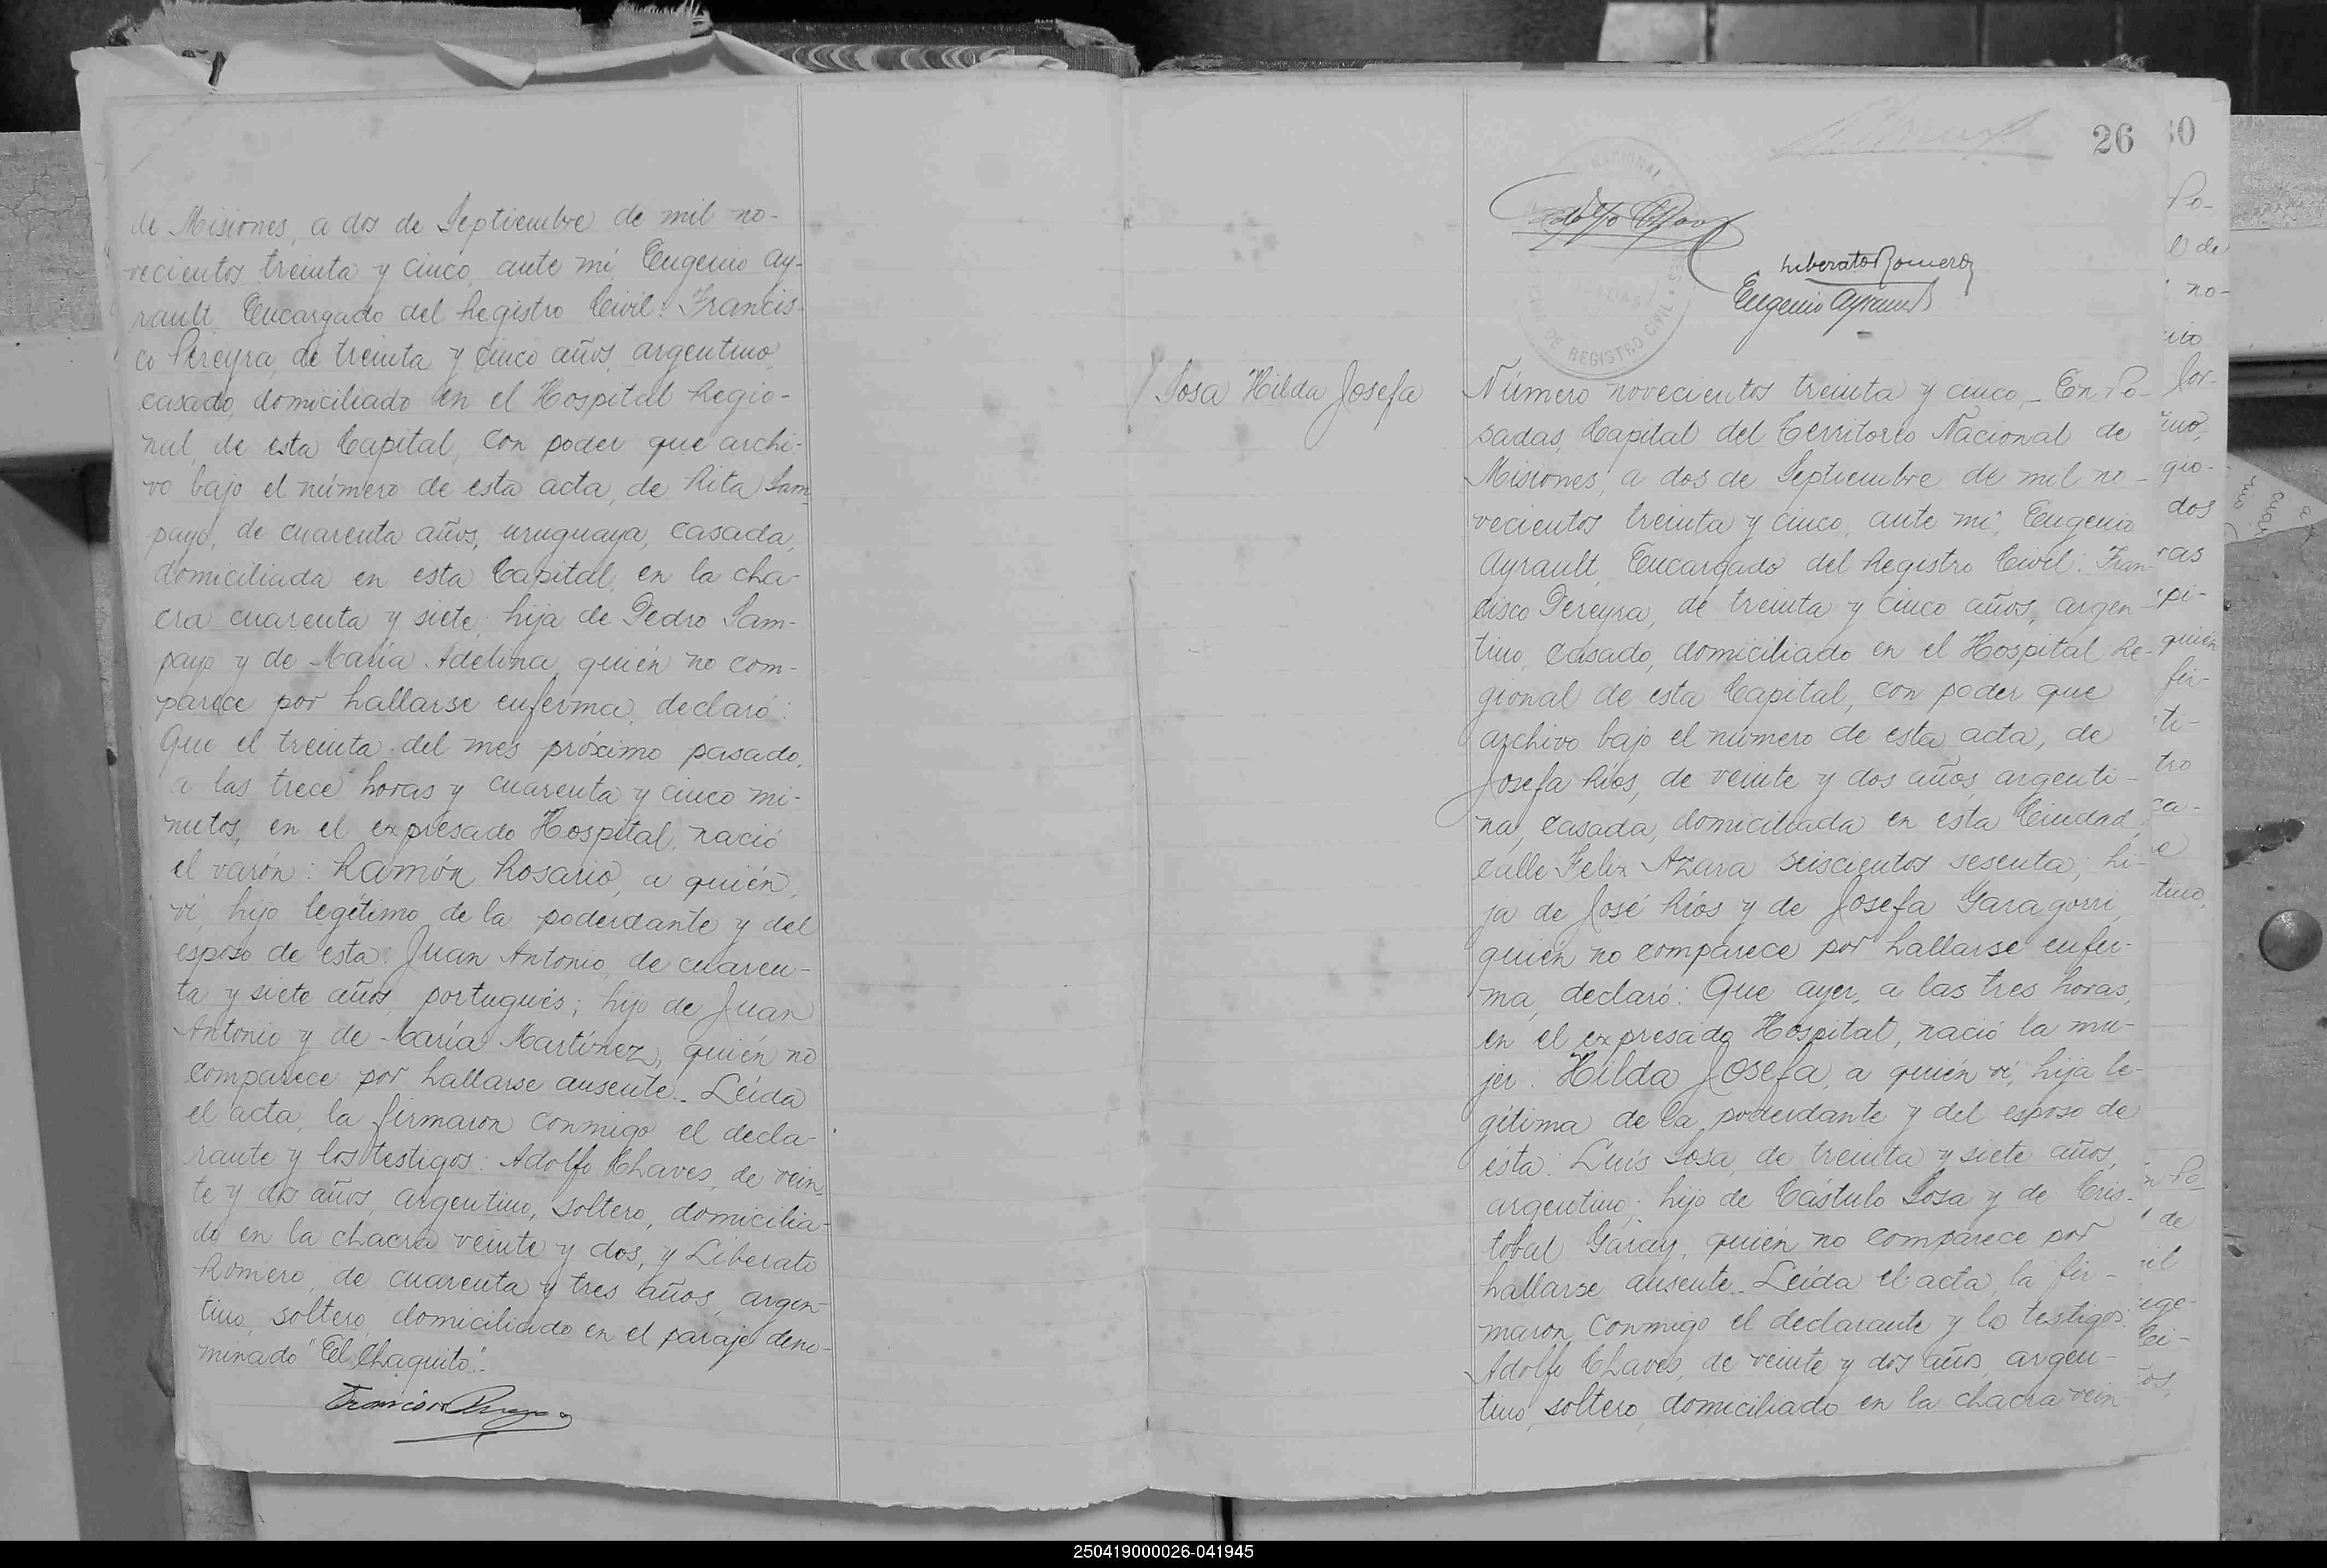 de Misiones, a dos de Septiembre de mil no-
vecientos treinta y cinco, ante mí Eugenio Ay-
rault, Encargado del Registro Civil: Francis-
co Pereyra, de treinta y cinco años, argentino,
casado, domiciliado en el Hospital Regio-
nal, de esta Capital, con poder que archi-
vo bajo el número de esta acta, de Rita Sam
payo, de cuarenta años, uruguaya, casada,
domiciliada en esta Capital, en la cha-
cra cuarenta y siete; hija de Pedro Sam-
payo y de María Adelina, quién no com-
parece por hallarse enferma, declaró:
Que el treinta del mes próximo pasado,
a las trece horas y cuarenta y cinco mi-
nutos, en el expresado Hospital, nació
el varón: Ramón Rosario, a quién,
ví, hijo legítimo de la poderdante y del
esposo de esta: Juan Antonio, de cuaren-
ta y siete años, portugués; hijo de Juan
Antonio y de María Martínez, quién no
comparece por hallarse ausente.- Leída
el acta, la firmaron conmigo el decla-
rante y los testigos: Adolfo Chaves, de vein-
te y dos años, argentino, soltero, domicilia-
do en la chacra veinte y dos, y Liberato
Romero, de cuarenta y tres años, argen-
tino, soltero, domiciliado en el paraje deno-
minado "El Chaquito".-
26
Liberato Romero
Eugenio Ayrault
DE REGISTRO CIVIL
Sosa Hilda Josefa
Número novecientos treinta y cinco.- En Po-
sadas, Capital del Territorio Nacional de
Misiones, a dos de Septiembre de mil no-
vecientos treinta y cinco, ante mí, Eugenio
Ayrault, Encargado del Registro Civil: Fran-
cisco Pereyra, de treinta y cinco años, argen-
tino, casado, domiciliado en el Hospital Re-
gional de esta Capital, con poder que
archivo bajo el número de esta acta, de
Josefa Ríos, de veinte y dos años, argenti-
na, casada, domiciliada en esta Ciudad,
calle Felix Azara seiscientos sesenta; hi-
ja de José Ríos y de Josefa Garagorri,
quién no comparece por hallarse enfer-
ma, declaró: Que ayer, a las tres horas,
en el expresado Hospital, nació la mu-
jer: Hilda Josefa, a quién ví, hija le-
gítima de la poderdante y del esposo de
ésta: Luis Sosa, de treinta y siete años,
argentino; hijo de Cástulo Sosa y de Cris-
tobal Garay, quién no comparece por
hallarse ausente.- Leída el acta, la fir-
maron conmigo el declarante y los testigos:
Adolfo Chaves, de veinte y dos años, argen-
tino, soltero, domiciliado en la chacra vein
250419000026-041945